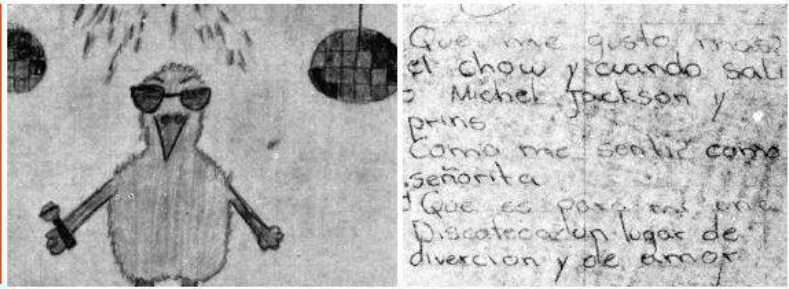 Que me gusto mas?
el chow y cuando sali
o Michel Jackson y
prins
Como me senti? como
señorita
Que es para mi una
Discoteca? un lugar de
divercion y de amor